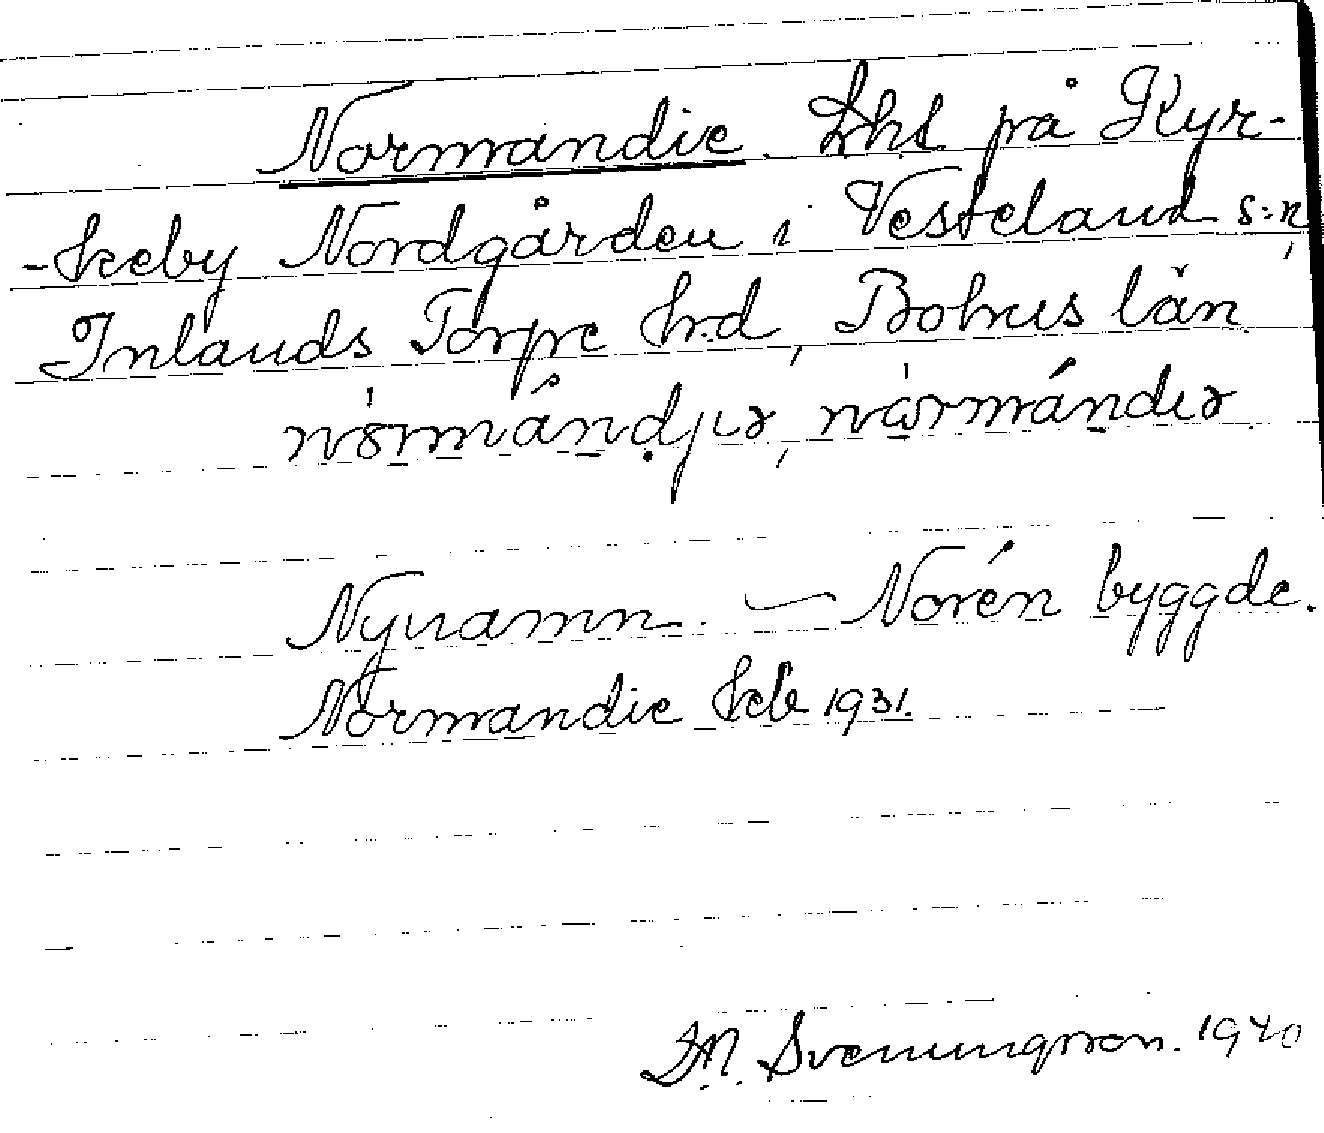 Normandie Lht på Kyr-
-keby Nordgården i Vesteland s:n,
Inlands Torpe hrd, Bohus län.
Nynamn. — Norén byggde.
Normandie feb 1931.
Svenungsson. 1940